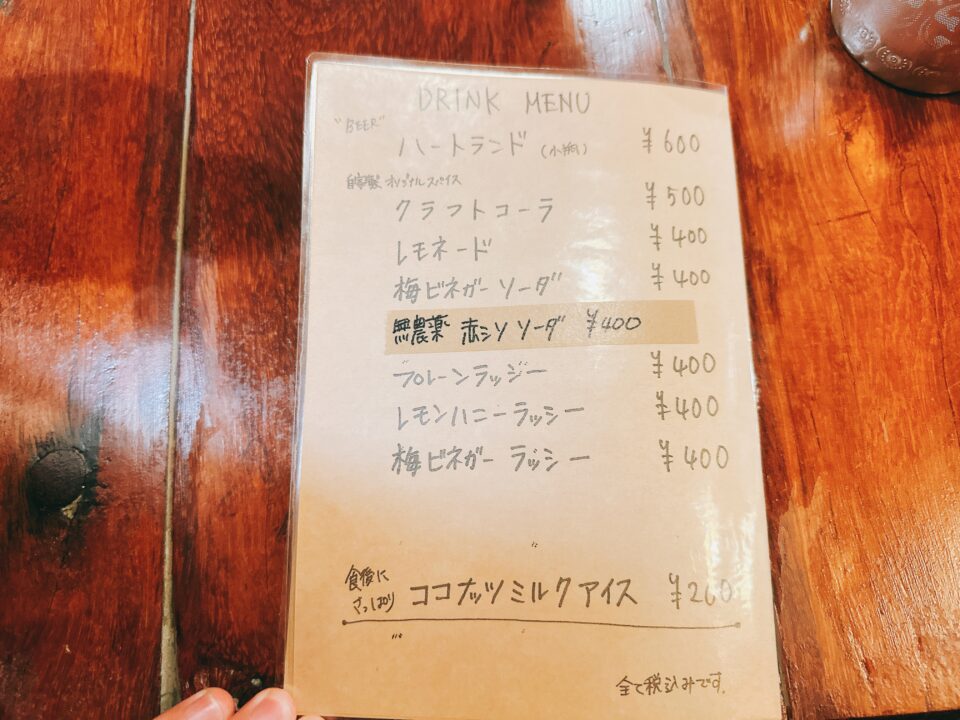 DRINK MENU
"BEER"
ハートランド (小瓶) ¥600
自家製 オリジナルスパイス
クラフトコーラ ¥500
レモネード ¥400
梅ビネガーソーダ ¥400
無農薬 赤シソソーダ ¥400
プレーンラッシー ¥400
レモンハニーラッシー ¥400
梅ビネガー ラッシー ¥400
食後に
さっぱり ココナッツミルクアイス ¥260
全て税込みです。